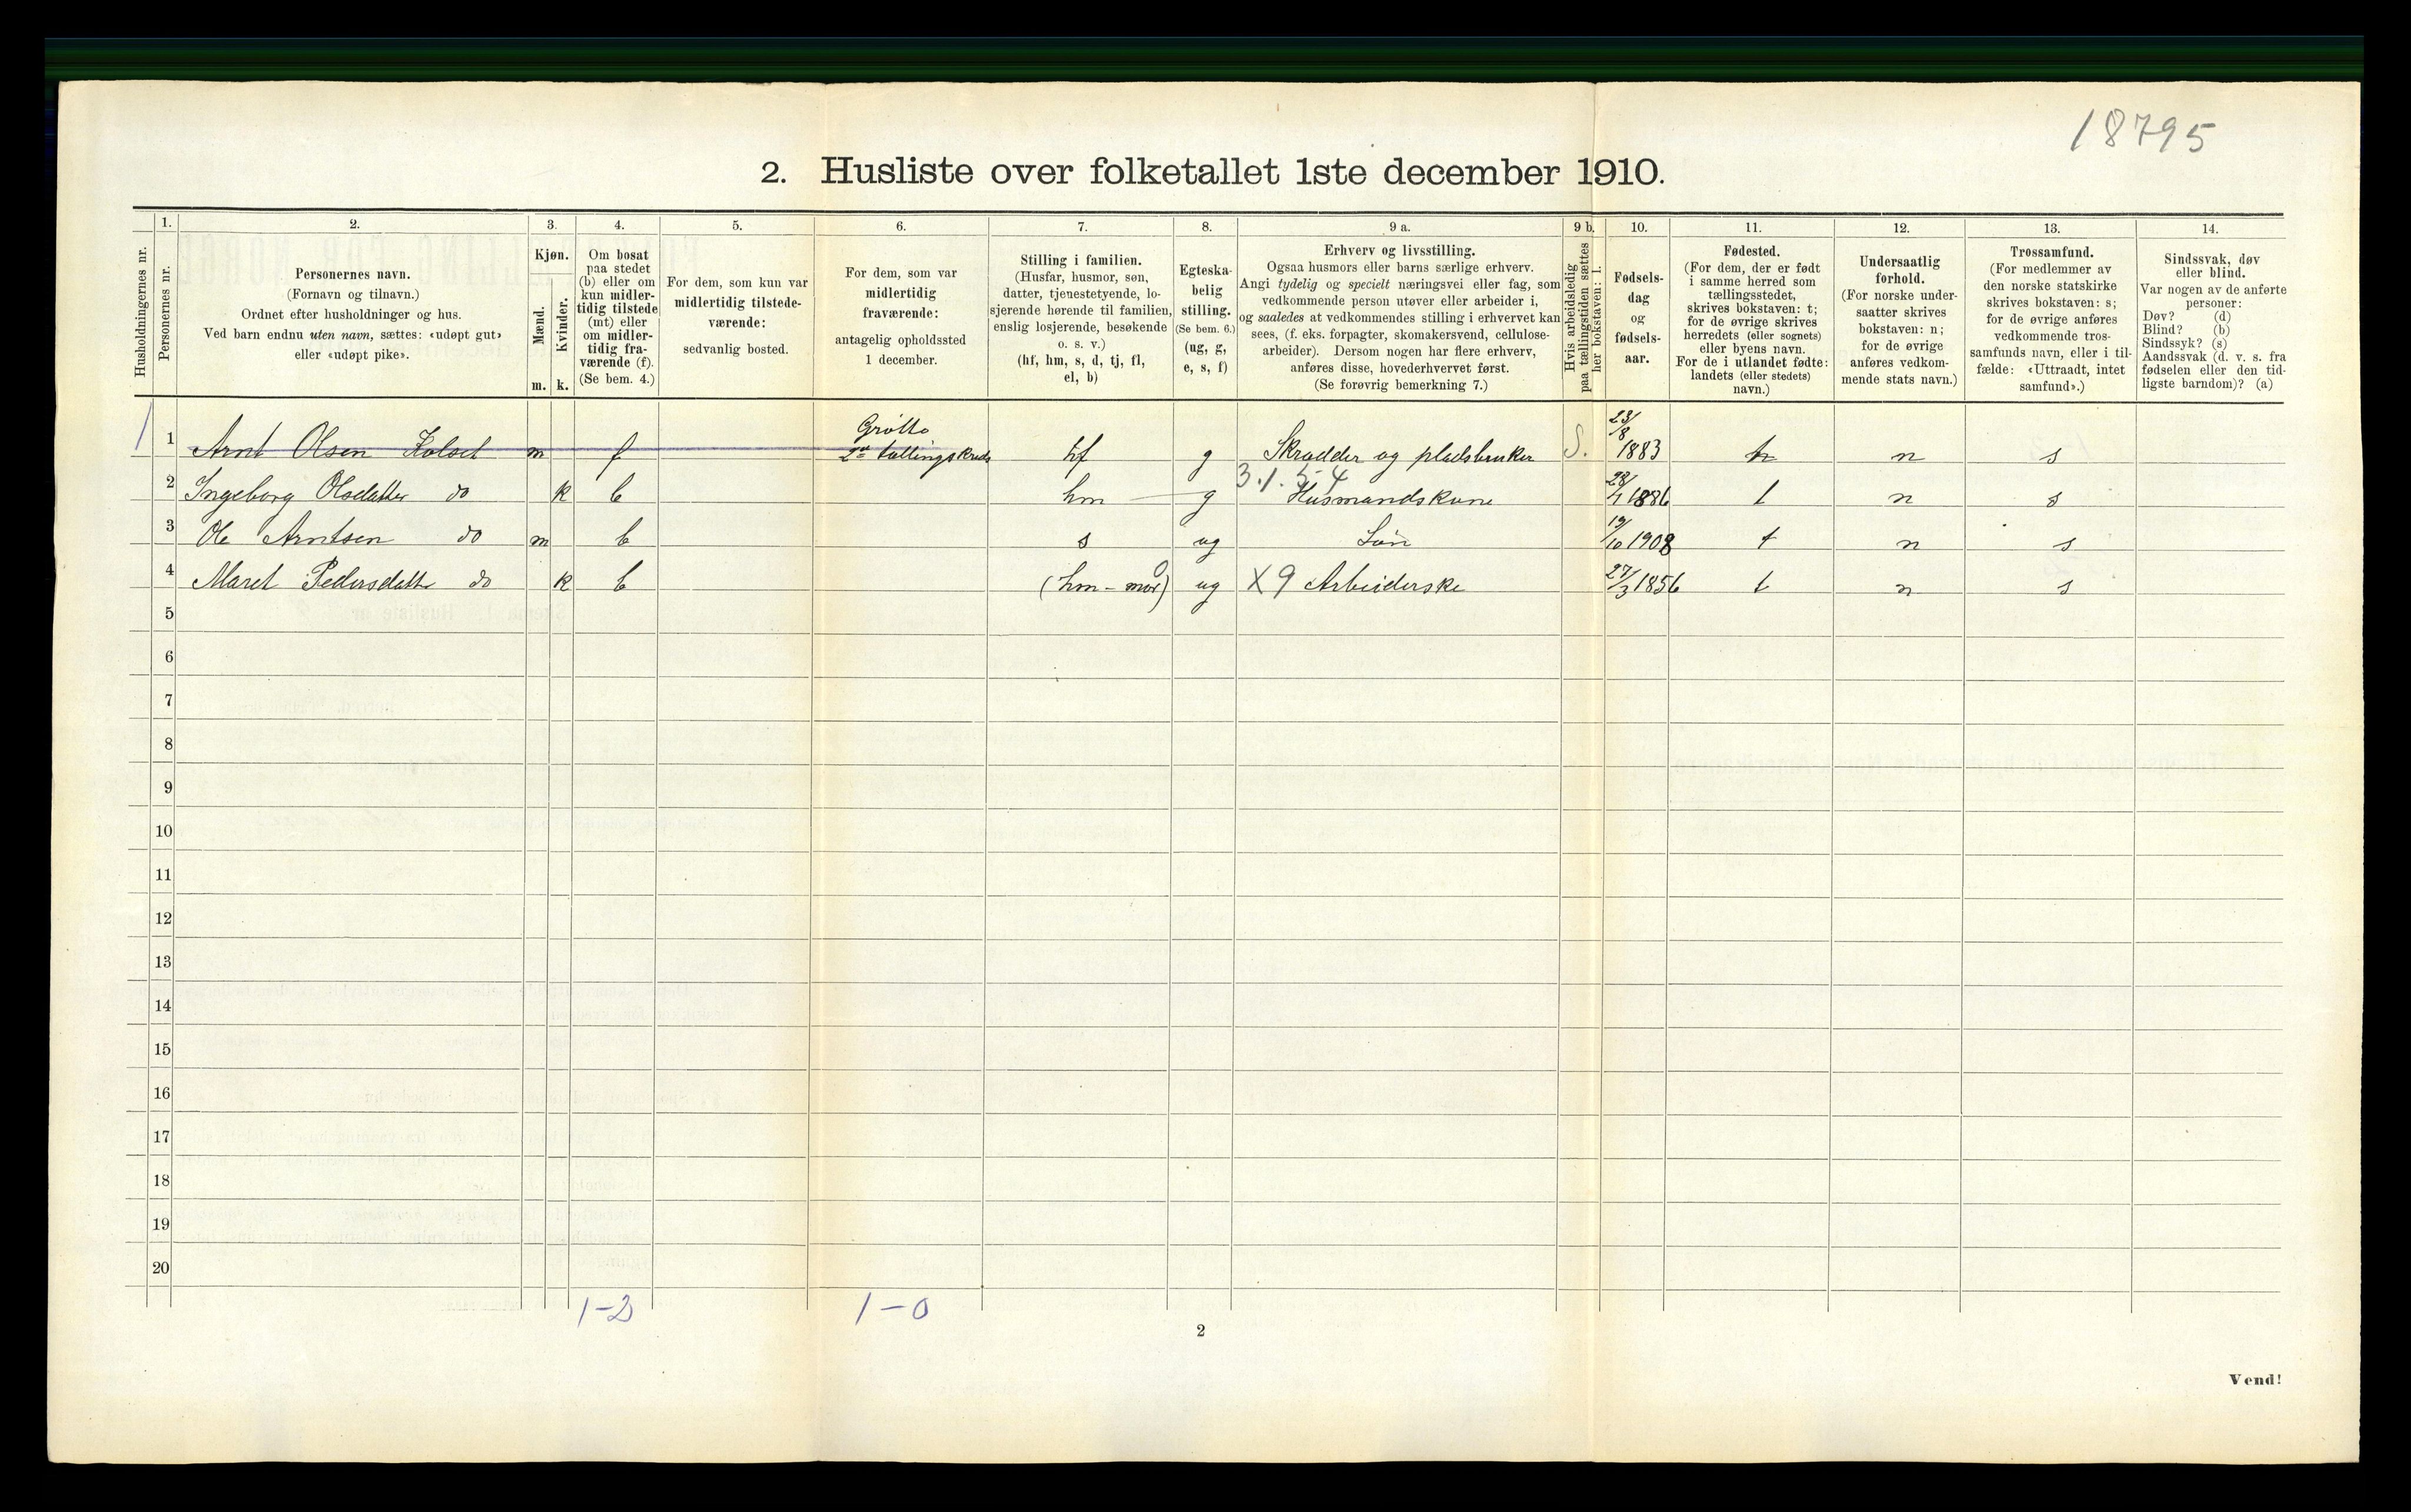 18795
2. Husliste over folketallet 1ste december 1910.
Husholdningernes nr.
1.
Personernes nr.
2.
Personernes navn.
(Fornavn og tilnavn.)
Ordnet efter husholdninger og hus.
Ved barn endnu uten navn, sættes: «udøpt gut»
eller «udøpt pike».
3.
Kjøn.
Mænd.
Kvinder.
m. k.
4.
Om bosat
paa stedet
(b) eller om
kun midler-
tidig tilstede
(mt) eller
om midler-
tidig fra-
værende (f).
(Se bem. 4.)
5.
For dem, som kun var
midlertidig tilstede-
værende:
sedvanlig bosted.
6.
For dem, som var
midlertidig
fraværende:
antagelig opholdssted
1 december.
7.
Stilling i familien.
(Husfar, husmor, søn,
datter, tjenestetyende, lo-
sjerende hørende til familien,
enslig losjerende, besøkende
o. s. v.)
(hf, hm, s, d, tj, fl,
el, b)
8.
Egteska-
belig
stilling.
(Se bem. 6.)
(ug, g,
e, s, f)
9 a.
Erhverv og livsstilling.
Ogsaa husmors eller barns særlige erhverv.
Angi tydelig og specielt næringsvei eller fag, som
vedkommende person utøver eller arbeider i,
og saaledes at vedkommendes stilling i erhvervet kan
sees, (f. eks. forpagter, skomakersvend, cellulose-
arbeider). Dersom nogen har flere erhverv,
anføres disse, hovederhvervet først.
(Se forøvrig bemerkning 7.)
9 b.
Hvis arbeidsledig
paa tællingstiden sættes
her bokstaven: l.
10.
Fødsels-
dag
og
fødsels-
aar.
11.
Fødested.
(For dem, der er født
i samme herred som
tællingsstedet,
skrives bokstaven: t;
for de øvrige skrives
herredets (eller sognets)
eller byens navn.
For de i utlandet fødte:
landets (eller stedets)
navn.)
12.
Undersaatlig
forhold.
(For norske under-
saatter skrives
bokstaven: n;
for de øvrige
anføres vedkom-
mende stats navn.)
13.
Trossamfund.
(For medlemmer av
den norske statskirke
skrives bokstaven: s;
for de øvrige anføres
vedkommende tros-
samfunds navn, eller i til-
fælde: «Uttraadt, intet
samfund».)
14.
Sindssvak, døv
eller blind.
Var nogen av de anførte
personer:
Døv? (d)
Blind? (b)
Sindssyk? (s)
Aandssvak (d. v. s. fra
fødselen eller den tid-
ligste barndom)? (a)
Grötto
1 1 Arnt Olsen Kolset m f 2den tællingskreds hf g Skrædder og pladsbruker S. 23/8 1883 n s
3.1.5-4
2 Ingeborg Olsdatter do k b hm g Husmandskone 28/1 1886 t n s
3 Ole Arntsen do m b s ug Sön 19/10 1908 t n s
0
4 Maret Pedersdatter do k b (hm-mor) ug X9 Arbeiderske 27/3 1856 t n s
5
6
7
8
9
10
11
12
13
14
15
16
17
18
19
20
1-2 1-0
2
Vend!